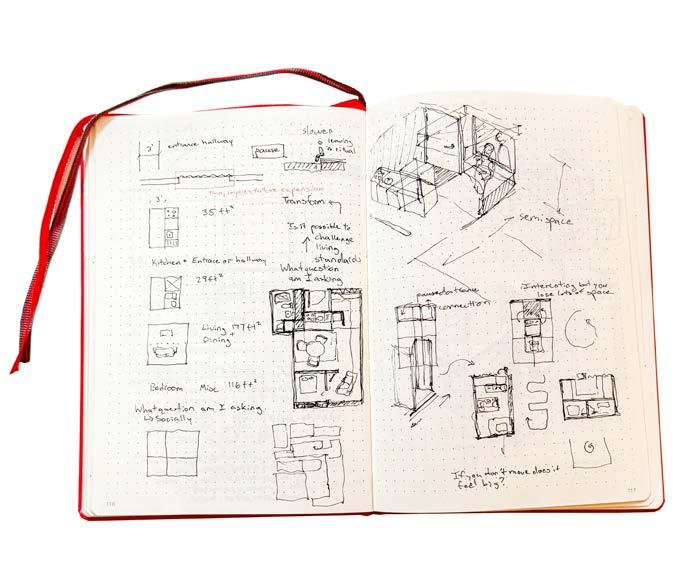 3'
entrance hallway
pause
slower
leaving
is ritual
implies future expansion
3'
35 ft²
Transform
Is it possible to
challenge
living
standards
Kitchen + Entrace or hallway
29 ft²
What question
am I asking
Living 177 ft²
+
Dining
Bedroom Misc 116 ft²
What question am I asking
↳ Socially
116
semi space
connection
Interesting but you
lose lots of space
If you don't move does it
feel big?
117